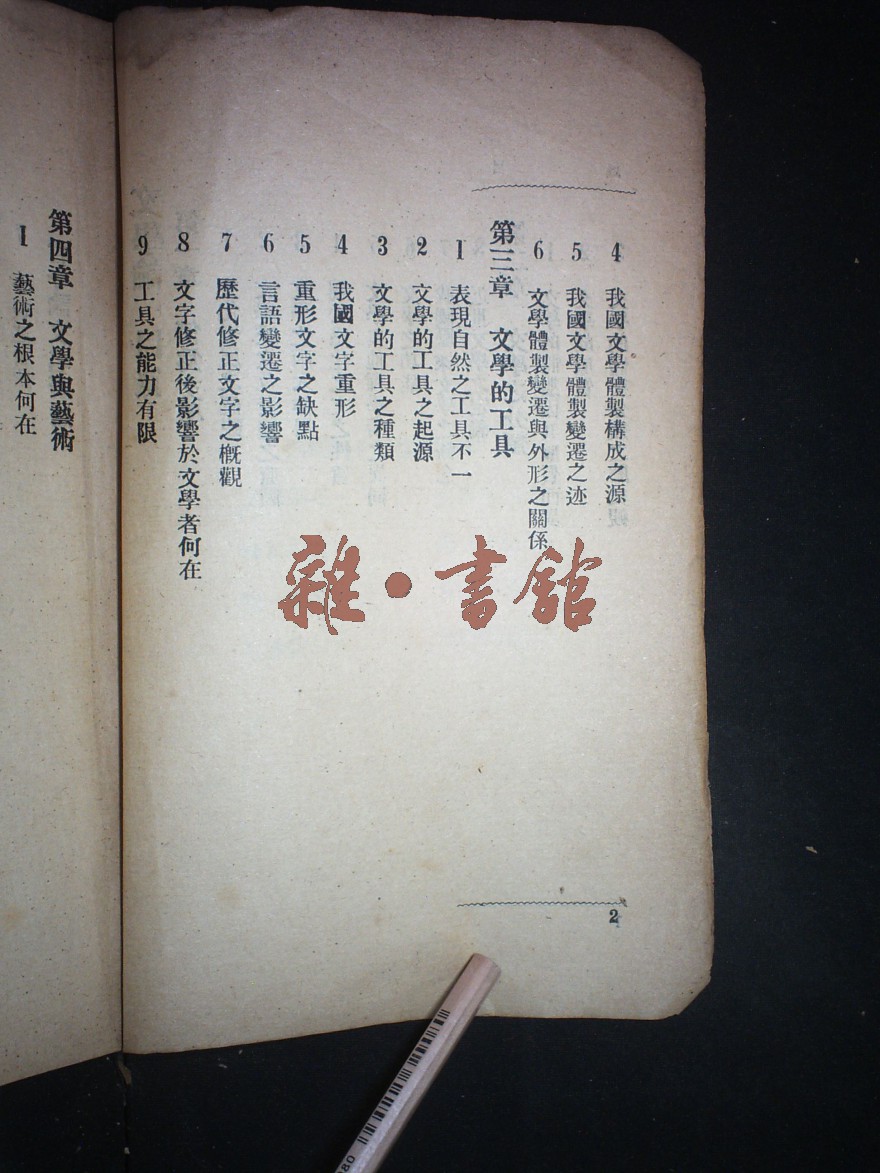 4 我國文學體製構成之源
5 我國文學體製變遷之迹
6 文學體製變遷與外形之關係
第三章 文學的工具
1 表現自然之工具不一
2 文學的工具之起源
3 文學的工具之種類
4 我國文字重形
5 重形文字之缺點
6 言語變遷之影響
7 歷代修正文字之概觀
8 文字修正後影響於文學者何在
9 工具之能力有限
2
第四章 文學與藝術
1 藝術之根本何在
雜·書館
80